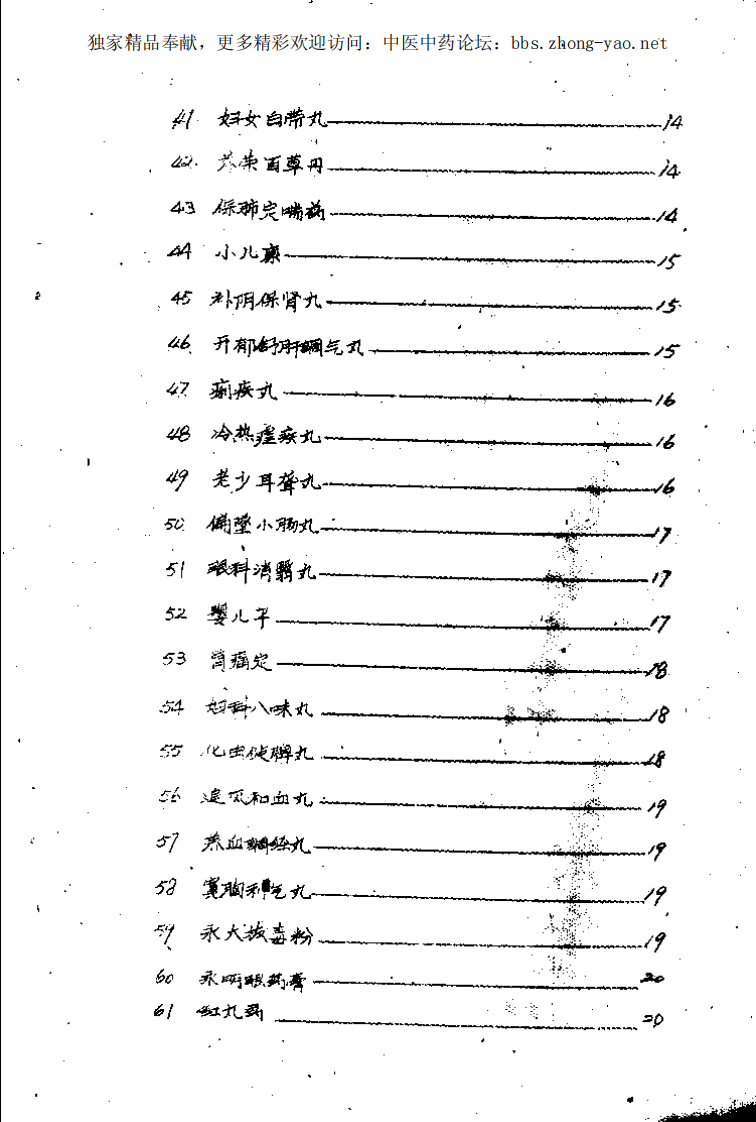 独家精品奉献，更多精彩欢迎访问：中医中药论坛：bbs.zhong-yao.net
41 妇女白带丸 14
42. 养荣百草丹 14
43 保肺定喘药 14
44 小儿康 15
45 补阴保肾丸 15
46. 开郁舒肝调气丸 15
47. 痢疾丸 16
48 冷热痊疾丸 16
49 老少耳聋丸 16
50. 偏坠小肠丸 17
51 眼科消翳丸 17
52 婴儿平 17
53 胃痛定 18
54 妇科八味丸 18
55 化虫健脾丸 18
56 追风和血丸 19
57 养血调经丸 19
58 宽胸利气丸 19
59 永大拔毒粉 19
60 永明眼药膏 20
61 红丸药 20